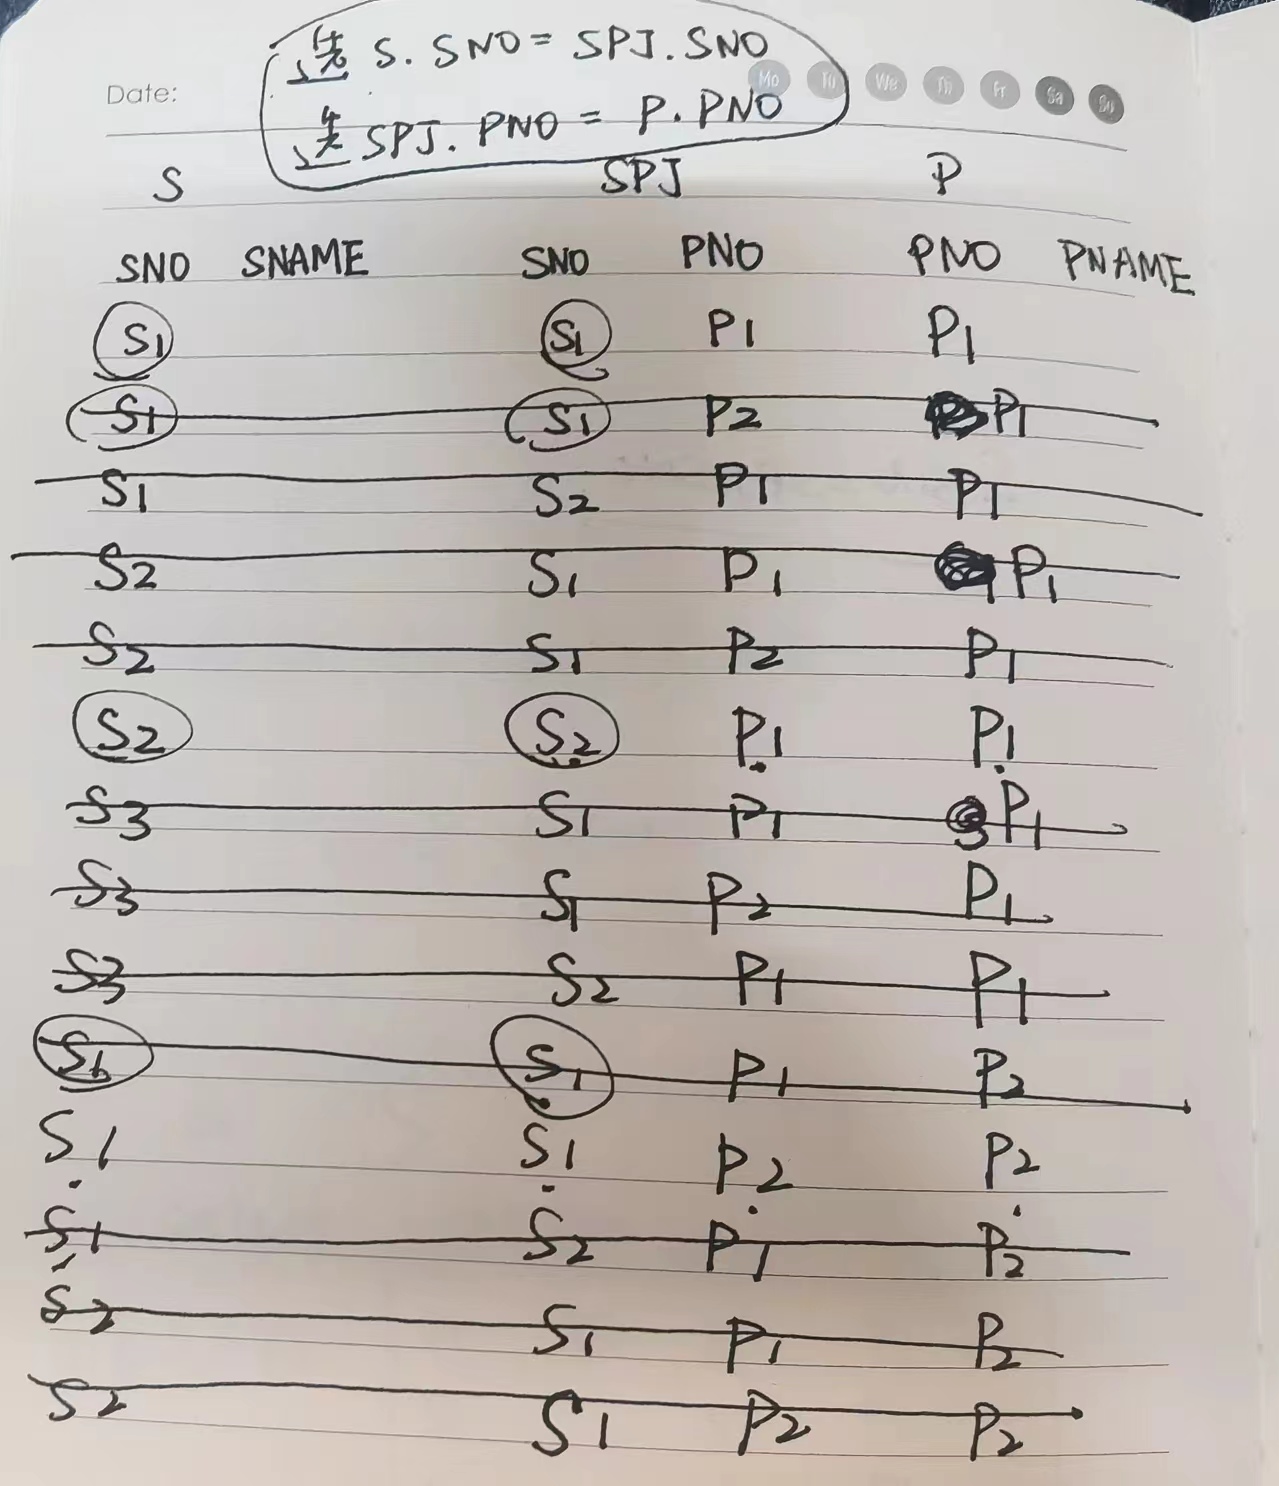 选 S. SNO = SPJ. SNO
Mo Tu We Th Fr Sa Su
Date:
选 SPJ. PNO = P. PNO
S SPJ P
SNO SNAME SNO PNO PNO PNAME
S1 S1 P1 P1
S1 S1 P2 P1
S1 S2 P1 P1
S2 S1 P1 P1
S2 S1 P2 P1
S2 S2 P1 P1
S3 S1 P1 P1
S3 S1 P2 P1
S3 S2 P1 P1
S1 S1 P1 P2
S1 S1 P2 P2
S1 S2 P1 P2
S2 S1 P1 P2
S2 S1 P2 P2